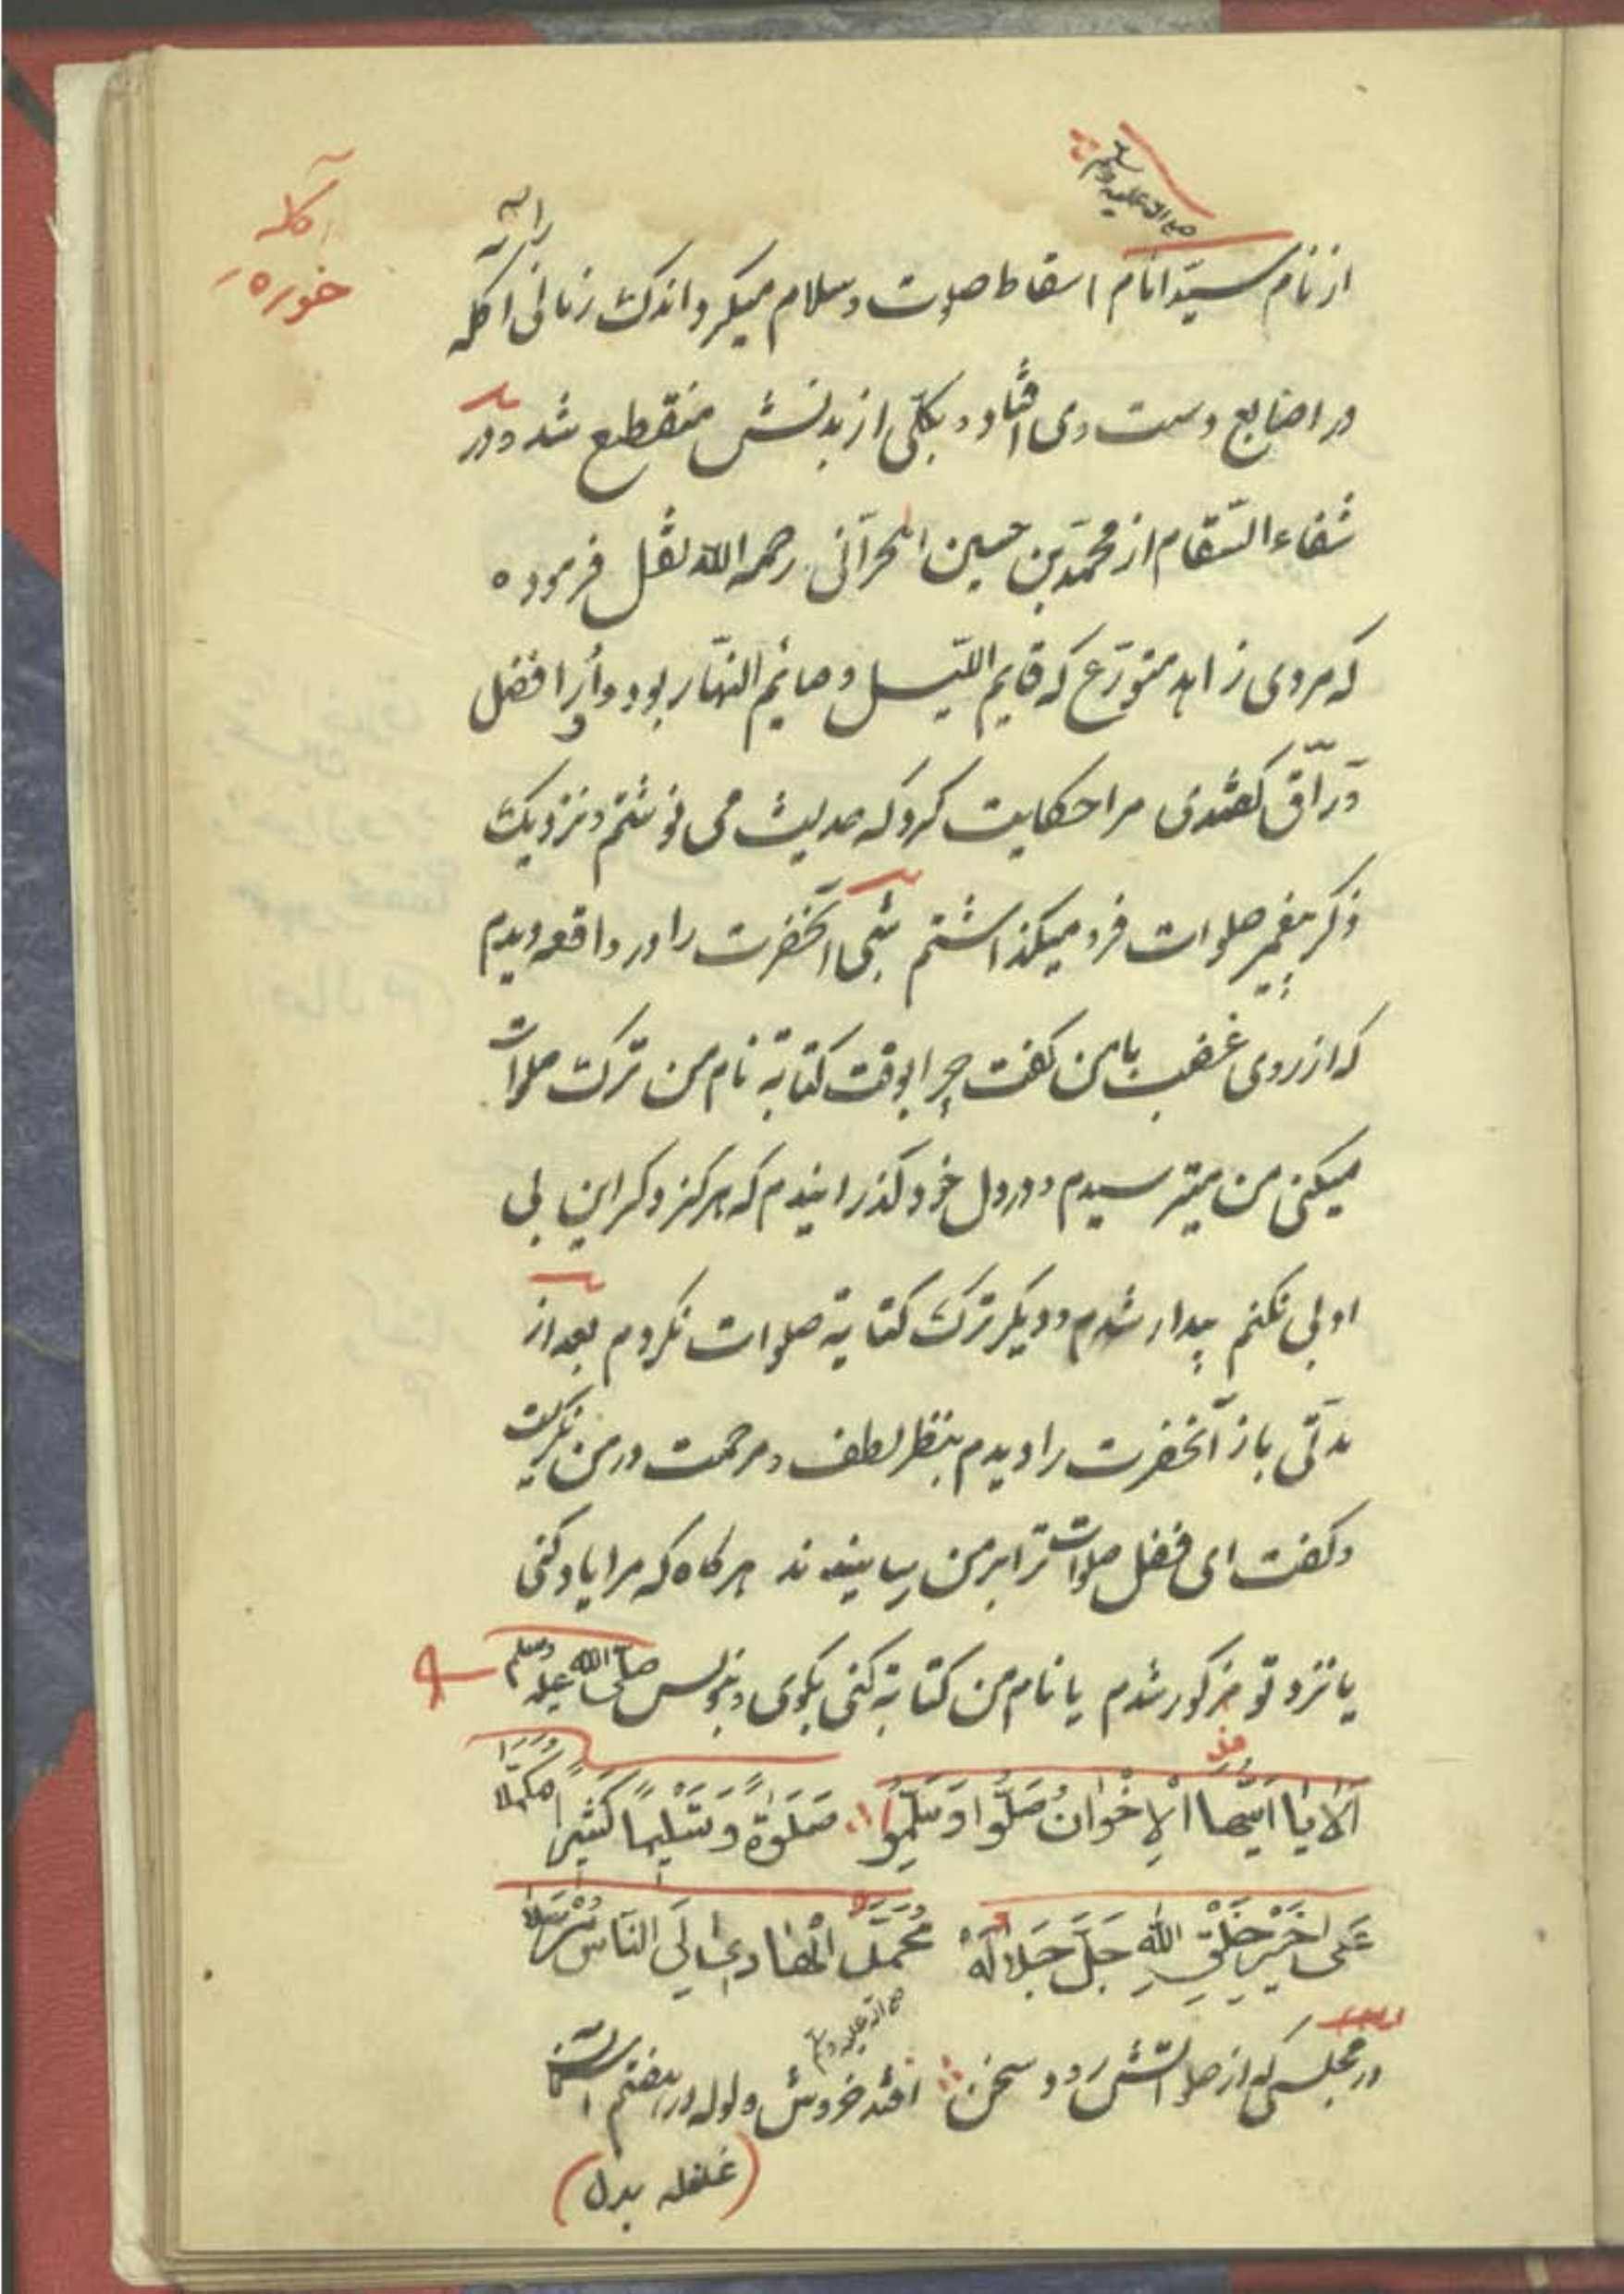 صلی الله علیه وسلم
آکله
خوره
از نام سیّد انام اسقاط صلوت وسلام میکرد اندک زمانی اکله
در اصابع دست وی افتاد و بکلّی از بدنش منقطع شد ودر
شفاء السّقام از محمّد بن حسین الحرّانی رحمه الله نقل فرموده
که مردی زاهد متورّع که قایم اللّیل و صایم النّهار بود و أورا فضل
ورّاق گفتندی مرا حکایت کرد که حدیث می نوشتم و نزدیک
ذکر پیغمبر صلوات فرو میکذاشتم شبی آنحضرت را در واقعه دیدم
که از روی غضب بامن کفت چرا بوقت کتابة نام من ترک صلوات
میکنی من میترسیدم و در دل خود کذرانیدم که هرکز دکر این بی
ادبی نکنم بیدار شدم و دیکر ترک کتابة صلوات نکردم بعد از
مدّتی باز آنحضرت را دیدم بنظر لطف و مرحمت در من نکریست
وکفت ای فضل صلوات ترا بر من رسانیدند هرکاه که مرا یاد کنی
یا نزد تو مذکور شدم یا نام من کتابة کنی بکوی و بنویس صلّی الله علیه وسلم
اَلا یا ایّها الْاِخْوانُ صَلُّوا وَسَلِّمُوا صَلَوٰةً وَتَسْلِیماً کَثِیراً مکمّلا
عَلی خَیْرِ خَلْقِ اللهِ جَلَّ جَلالُهُ مُحَمَّدٍ الْهادِی اِلَی النّاسِ مُرْسَلا
صلی الله علیه وسلم
در مجلسی که از صلواتش رود سخن افتد خروش و لوله در هفتم آسمان
(غلغله بدل)